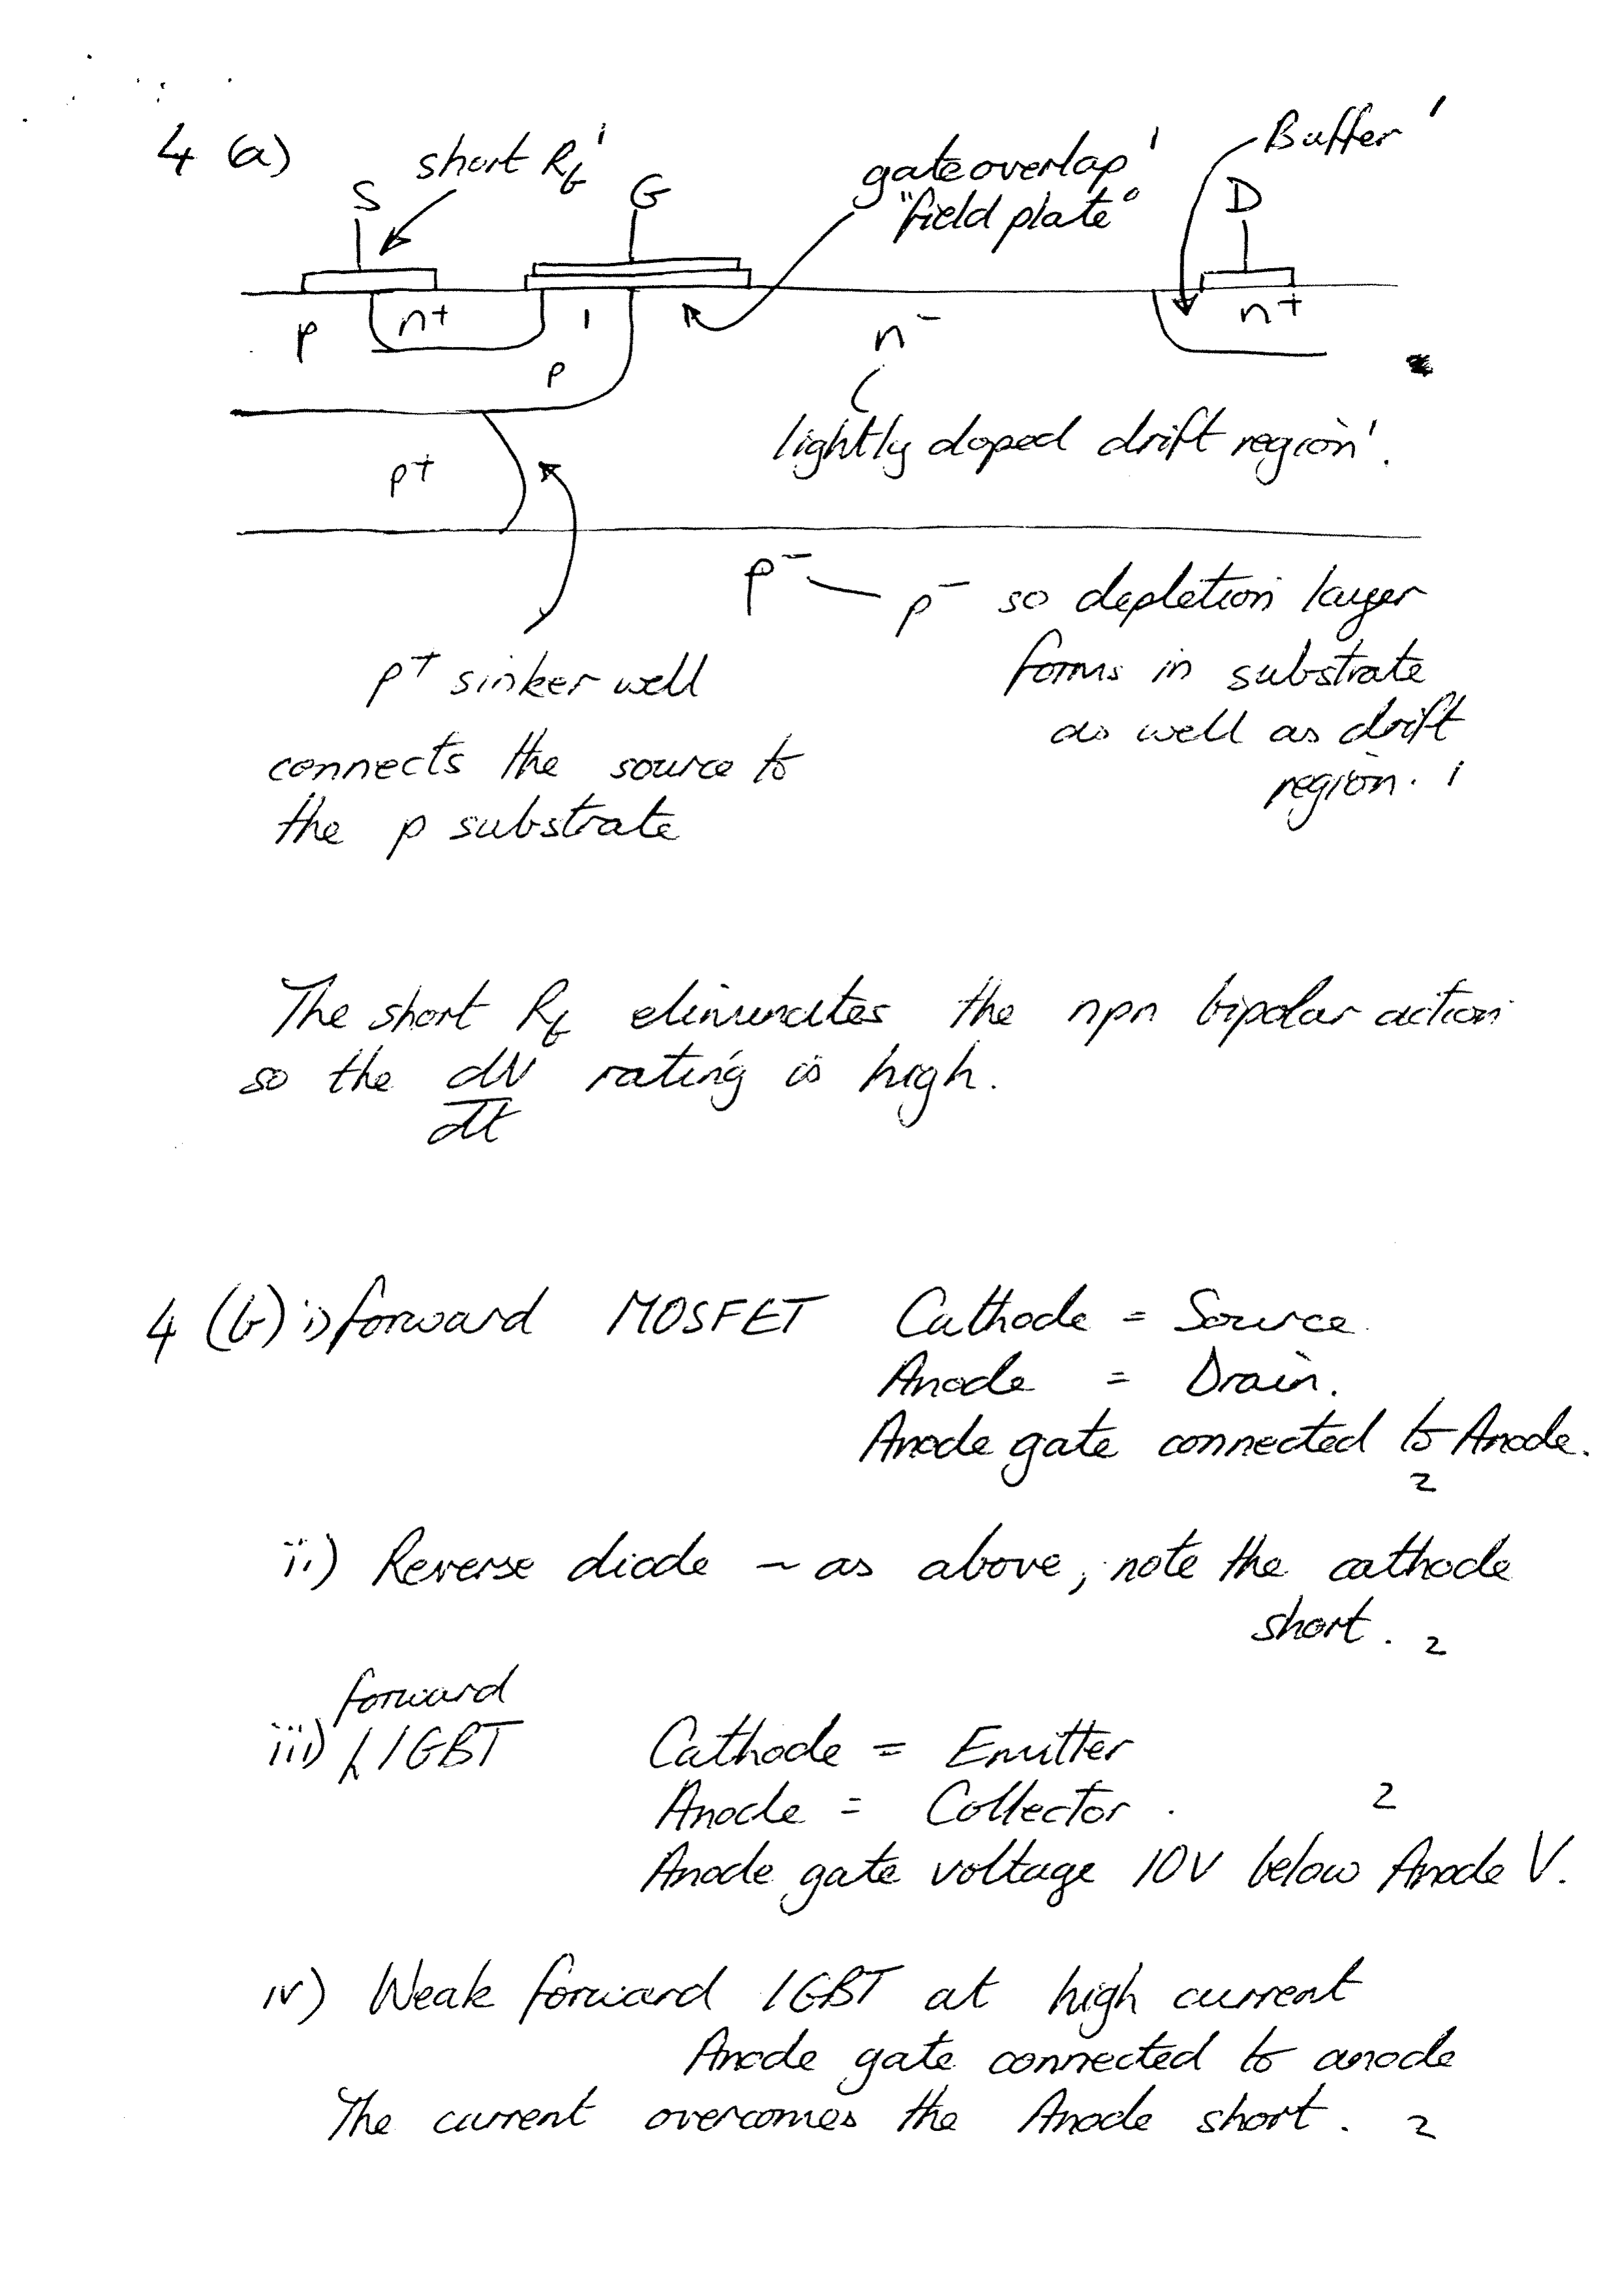 4 (a)
short Rb 1
gate overlap 1
"field plate"
Buffer 1
S
G
D
p
n+
1
n-
n+
p
lightly doped drift region 1.
p+
p- — p- so depletion layer
forms in substrate
as well as drift
region. 1
p+ sinker well
connects the source to
the p substrate
The short Rb eliminates the npn bipolar action
so the dV/dt rating is high.
4 (b) i) forward MOSFET Cathode = Source.
Anode = Drain.
Anode gate connected to Anode.
2
ii) Reverse diode ~ as above, note the cathode
short. 2
forward
iii) LIGBT Cathode = Emitter
Anode = Collector. 2
Anode gate voltage 10V below Anode V.
iv) Weak forward IGBT at high current
Anode gate connected to anode
The current overcomes the Anode short. 2